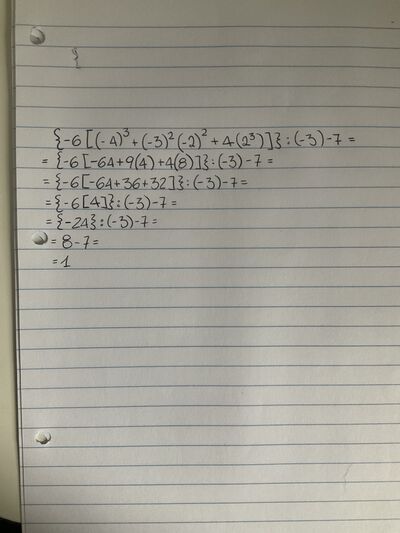 {
{-6[(-4)³+(-3)²(-2)²+4(2³)]}:(-3)-7=
={-6[-64+9(4)+4(8)]}:(-3)-7=
={-6[-64+36+32]}:(-3)-7=
={-6[4]}:(-3)-7=
={-24}:(-3)-7=
=8-7=
=1